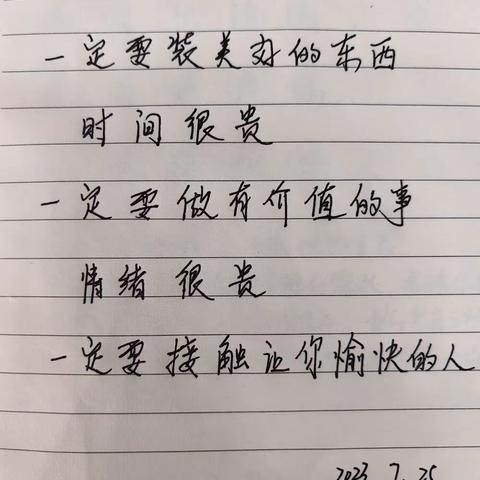 一定要装美好的东西
时间很贵
一定要做有价值的事
情绪很贵
一定要接触让你愉快的人
2023.7.25